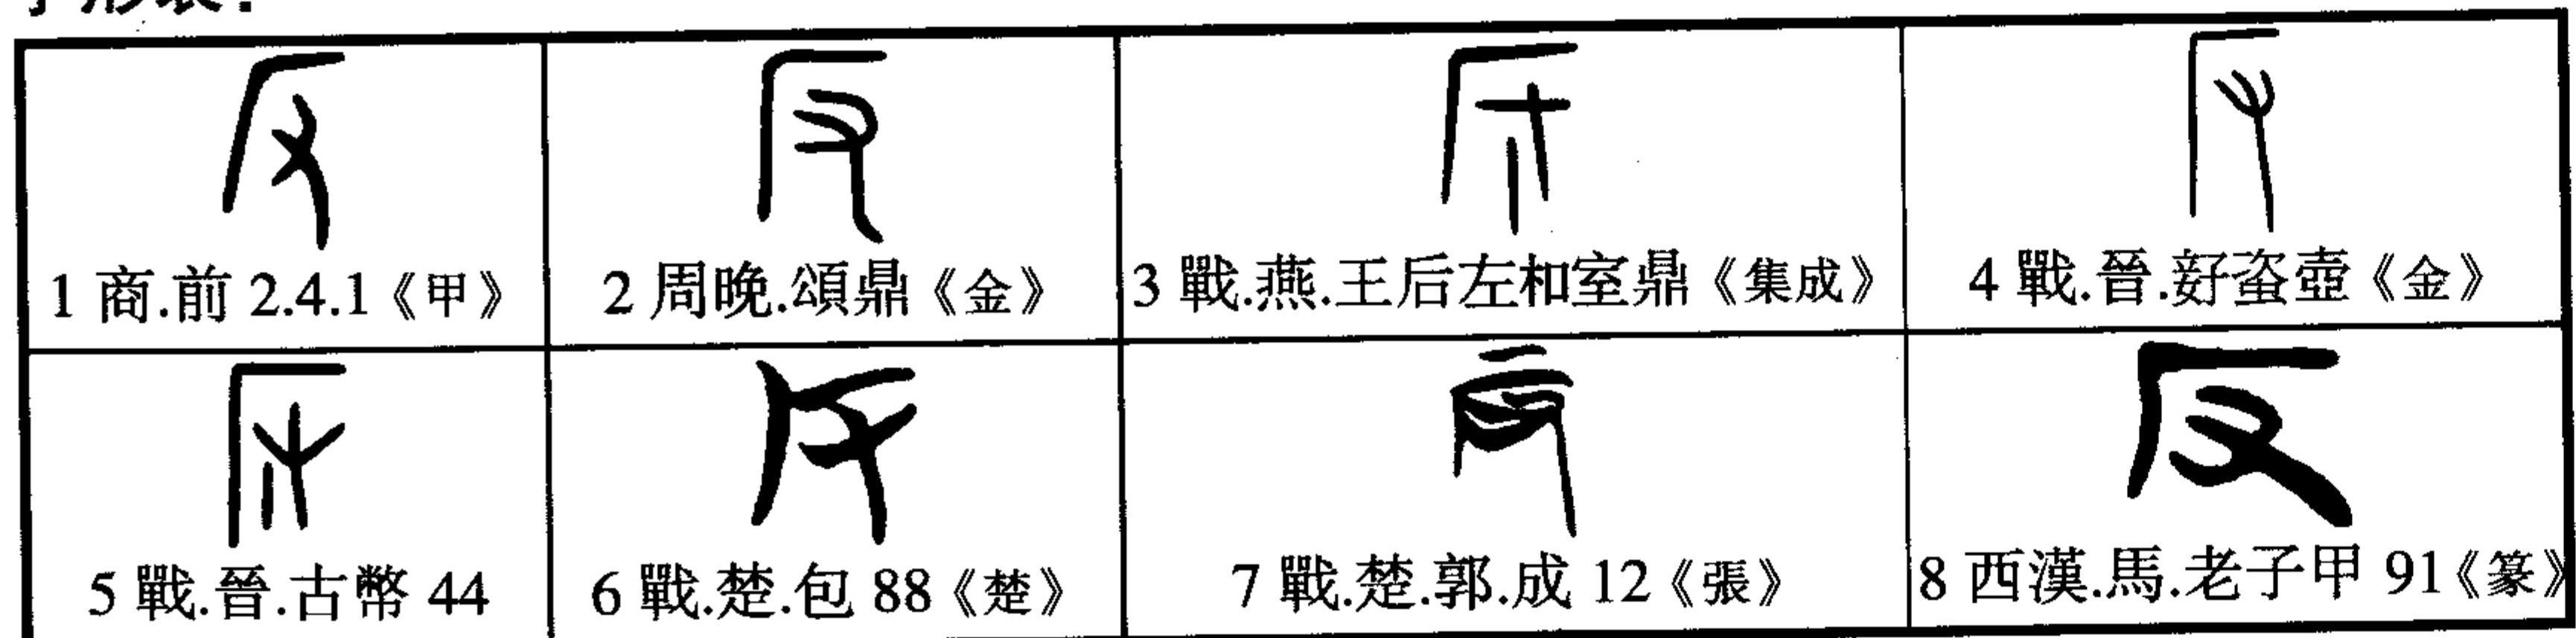 字形表：
1 商.前 2.4.1《甲》
2 周晚.頌鼎《金》
3 戰.燕.王后左和室鼎《集成》
4 戰.晉.𡚱蚉壺《金》
5 戰.晉.古幣 44
6 戰.楚.包 88《楚》
7 戰.楚.郭.成 12《張》
8 西漢.馬.老子甲 91《篆》